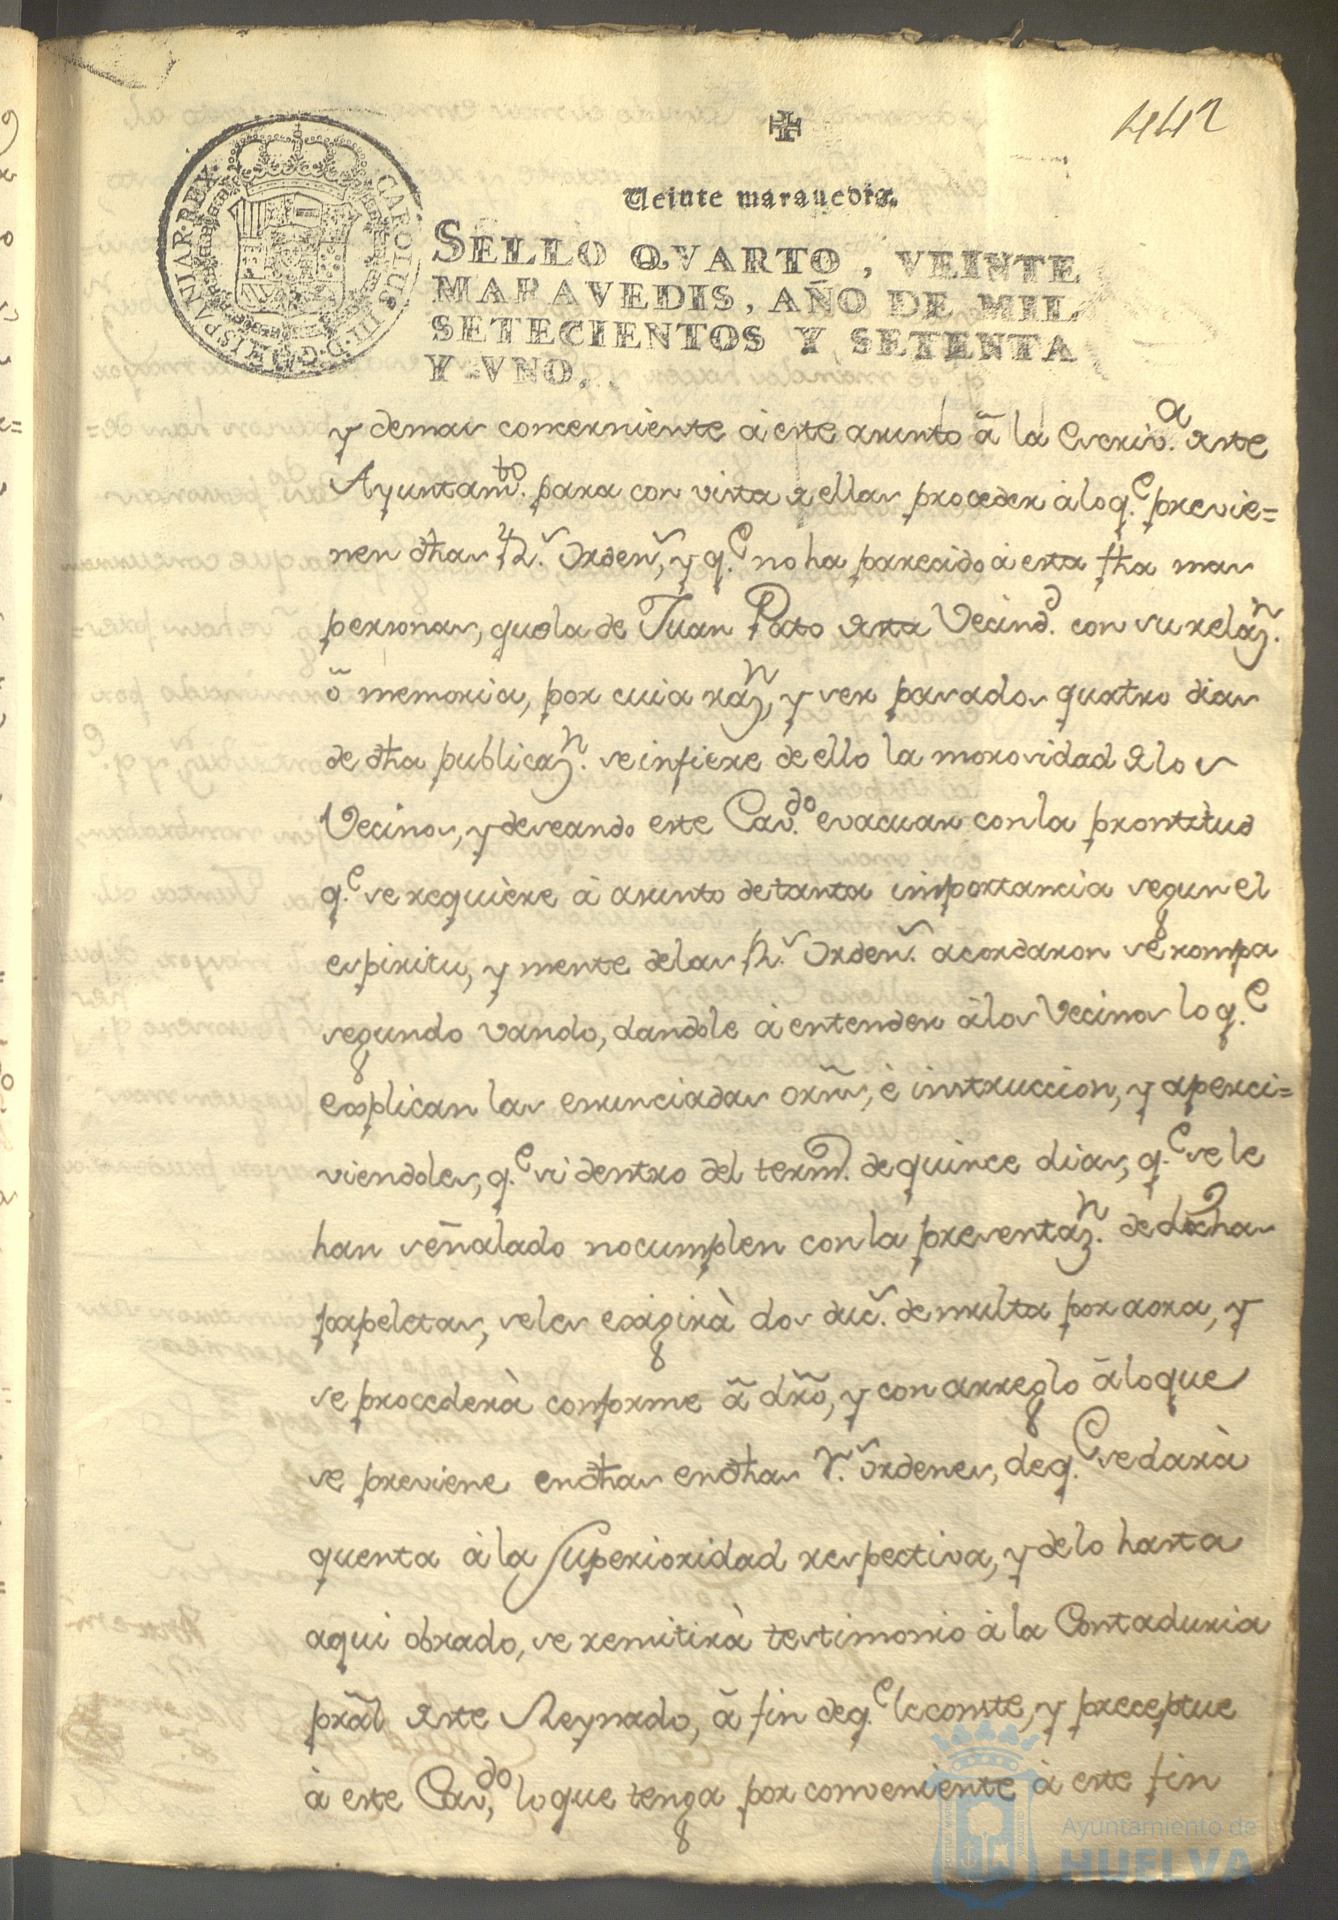 442
CAROLUS III D G HISPANIAR REX
Veinte maravedis.
SELLO QVARTO, VEINTE
MARAVEDIS, AÑO DE MIL
SETECIENTOS Y SETENTA
Y VNO.
y demas concerniente à este asunto â la Escriv.ª deste
Ayuntam.to para con vista de ellas proceder à lo q.e previe=
nen dhas R.s Orden.s, y q.e no ha parecido à esta fha mas
personas, que la de Juan Pato desta Vecind.d con su relaz.n
ô memoria, por cuia raz.n, y ser pasados quatro dias
de dha publicaz.n se infiere de ello la morosidad de los
Vecinos, y deseando este Cav.do evacuar con la prontitud
q.e se requière à asunto de tanta importancia segun el
espiritu, y mente de las R.s Orden.s acordaron se rompa
segundo vando, dandole à entender à los Vecinos lo q.e
explican las enunciadas orñs, è instruccion, y aperci=
viendoles, q.e si dentro del term.o de quince dias, q.e se le
han señalado no cumplen con la presentaz.n de dichas
papeletas, se les exigirà dos duc.s de multa por aora, y
se procederà conforme â dro, y con arreglo â lo que
se previene en dhas en dhas r.s ordenes, de q.e se darà
quenta à la Superioridad respectiva, y de lo hasta
aqui obrado, se remitirà testimonio à la Contaduria
pràl deste Reynado, â fin de q.e le conste, y preceptue
à este Cav.do, lo que tenga por conveniente à este fin
Ayuntamiento de
HUELVA